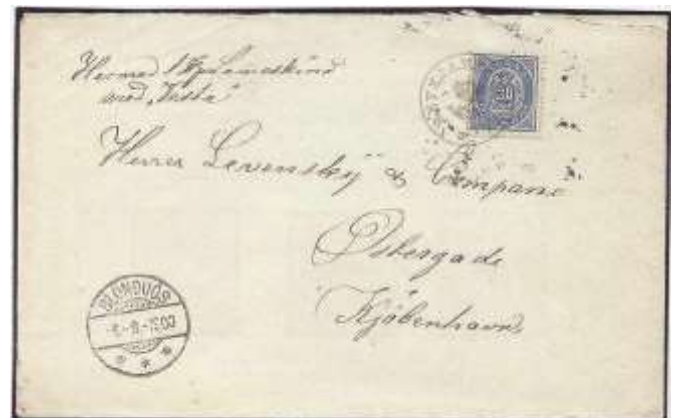 Hermed 1 Kp Lammeskind
med „Vesta"
20
Herrer Levensky & Compani
Østergade
Kjøbenhavn.
BLÖNDUÓS